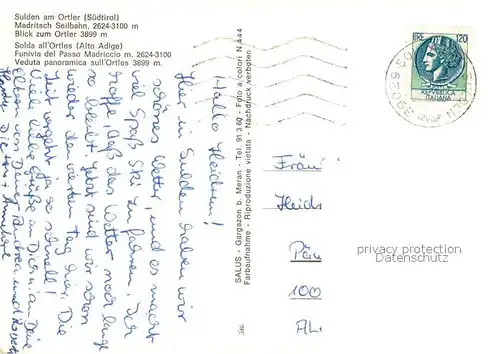 Sulden am Ortler (Südtirol)
Madritsch Seilbahn, 2624-3100 m
Blick zum Ortler 3899 m
Solda all'Ortles (Alto Adige)
Funivia del Passo Madriccio m. 2624-3100
Veduta panoramica sull'Ortles 3899 m.
Hallo Heidrun!
Hier in Sulden haben wir
schönes Wetter, und es macht
viel Spaß Ski zu fahren. Ich
hoffe, daß das Wetter noch lange
so bleibt. Jetzt sind wir schon
wieder den vierten Tag hier. Die
Zeit vergeht ja so schnell!
Viele liebe Grüße an Dich u. an Deine
Eltern von Deiner Andrea und Robert
Hardy, Dieter + Annelore
SALUS - Gargazon b. Meran - Tel. 91 3 60 - Foto a colori N. 444
Farbaufnahme - Riproduzione vietata - Nachdruck verboten
LIRE 120
REPUBBLICA
ITALIANA
39029
Fräu
Heidr
100
privacy protection
Datenschutz